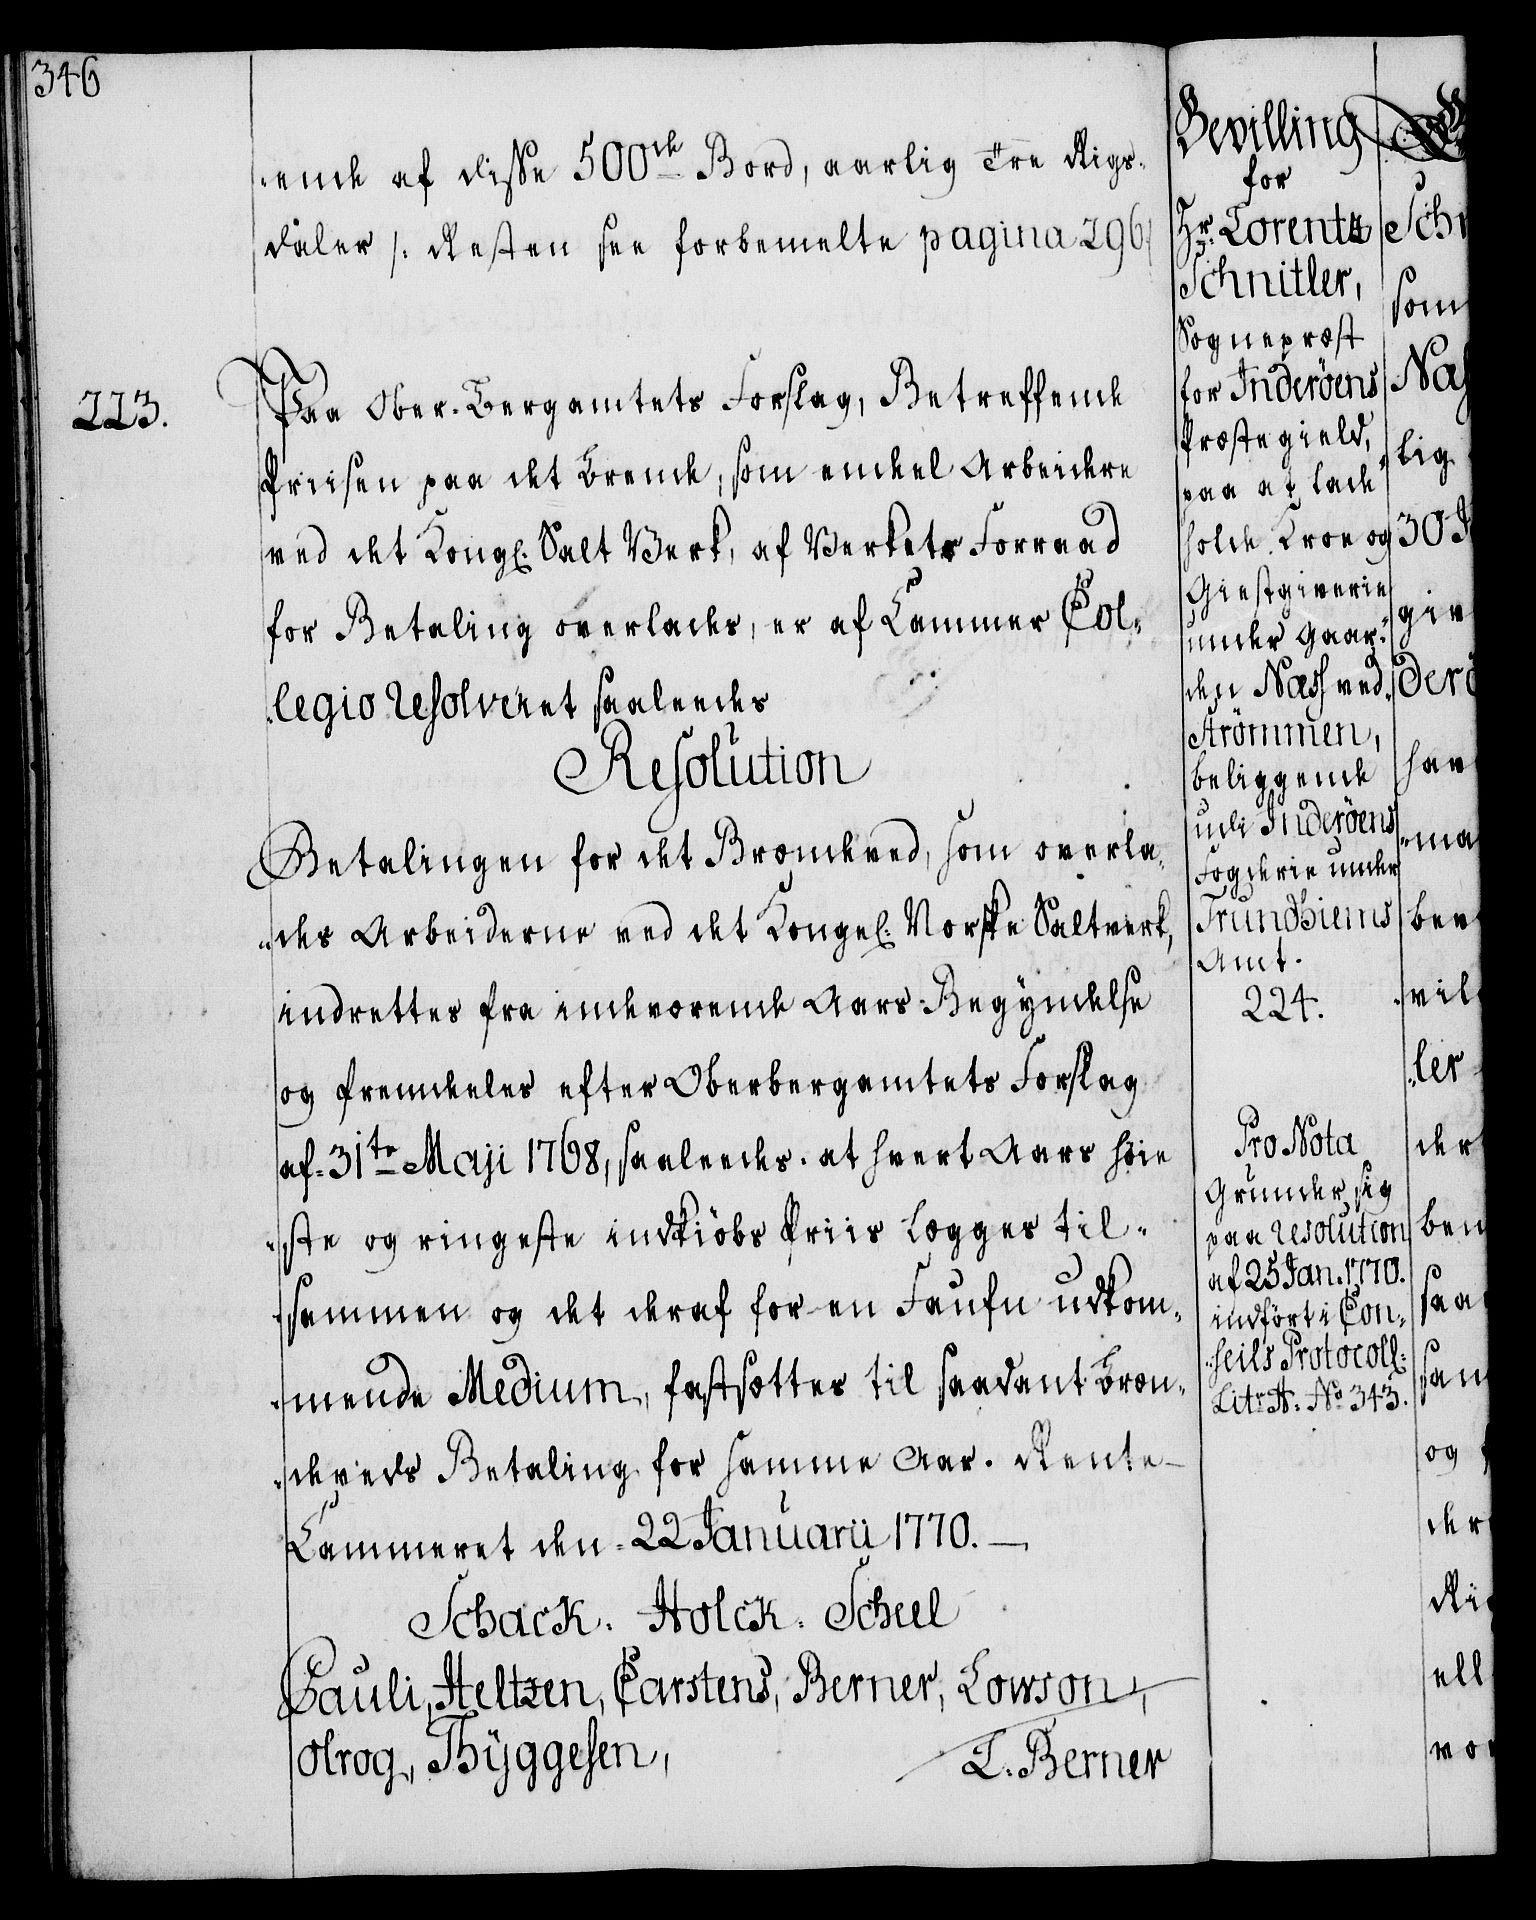 346
-ende af disse 500de Bord, aarlig Tre Rigs-
daler /: Resten see forbemelte pagina 296/
223.
Paa Ober-Bergamtets Forslag, Betreffende
Priisen paa det Brende, som endeel Arbeidere
ved det Kongl: Salt Verk, af Verkets Forraad
for Betaling overlades, er af Cammer Col-
legio Resolveret saaleedes
Resolution
Betalingen for det Brændeved, som overla-
-des Arbeiderne ved det Kongel: Norske Saltverk,
indrettes fra indeværende Aars Begyndelse
og fremdeles efter Oberbergamtets Forslag
af 31te Maji 1768, saaleedes at hvert Aars høie
-ste og ringeste indkiöbs Priis lægges til-
-sammen og det deraf for en Faufn udkom-
-mende Medium, fastsættes til saadant Bræn-
-deveds Betaling for samme Aar. Rente-
Cammeret den 22 Januarii 1770.
Schack. Holck. Scheel
Pauli, Heltzen, Carstens, Berner, Lowson,
Olrog, Thÿggesen,
T. Berner
Bevilling
for
Hr. Lorentz
Schnitler,
Sognepræst
for Inderöens
Præstegield,
paa at lade
holde Kroe og
Giestgiverie
under Gaar-
den Næss ved
Strömmen,
beliggende
udi Inderöens
Fogderie under
Trundhiems
Amt.
224.
Pro Nota
Grunder sig
paa resolution
af 25 Jan. 1770.
indfört i Con-
-seils Protocoll:
Litr A: No 343.
Sch
som
Næs
lig
30
giv
der
hav
-ma
bev
-vil
-ler
der
ben
saa
sam
og
der
Ri
ell
vo